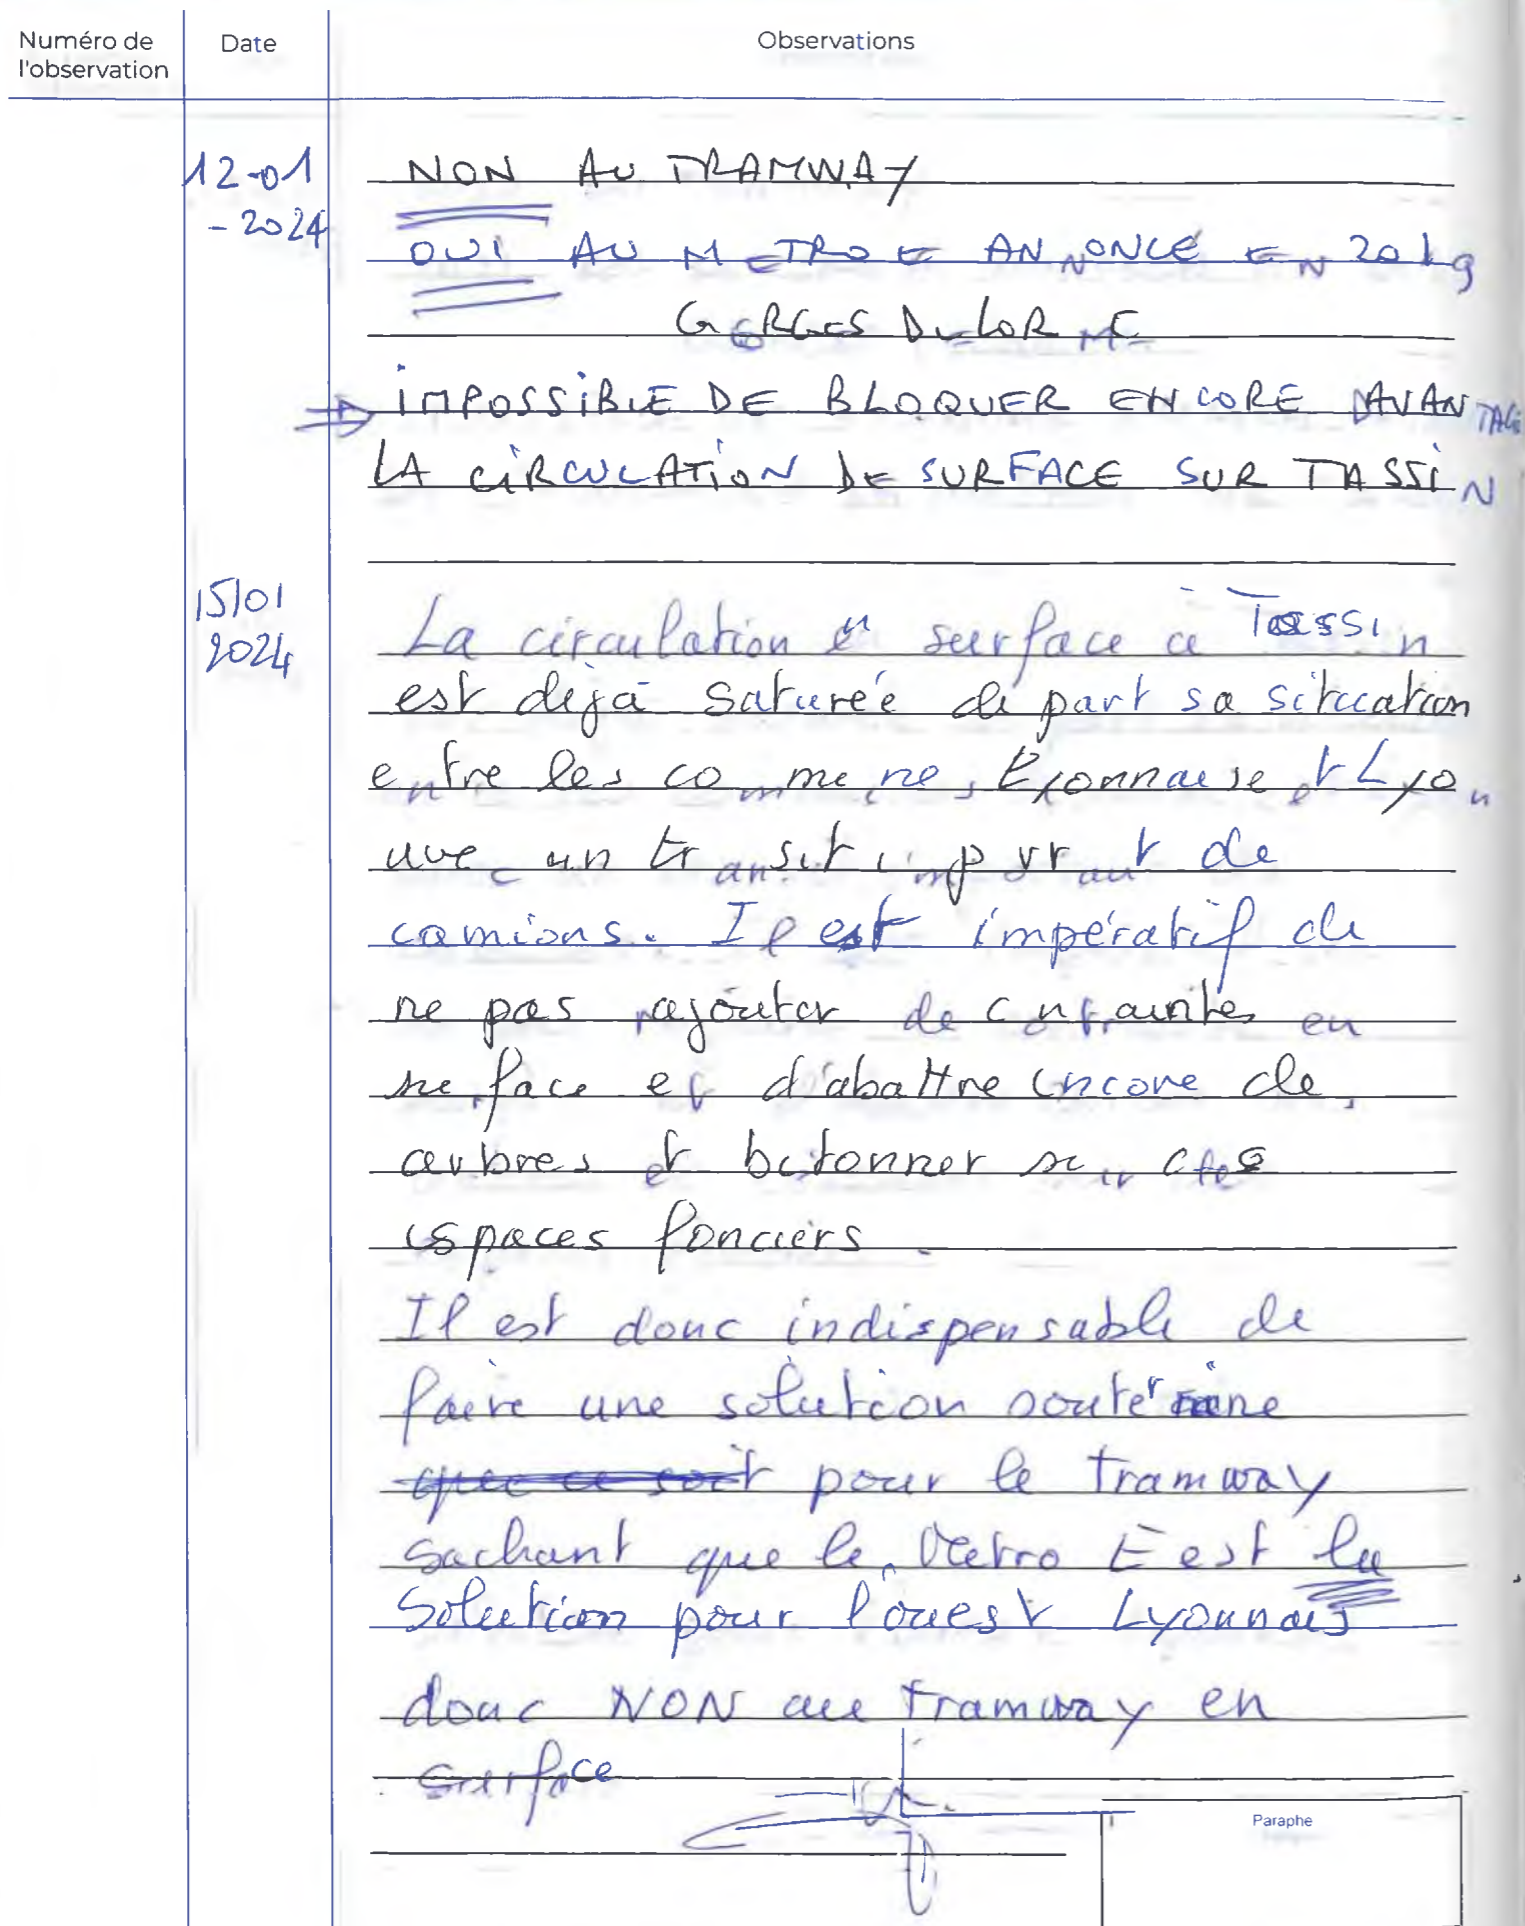 Numéro de l'observation
Date
Observations
12-01
-2024
NON AU TRAMWAY
OUI AU METRO E ANNONCÉ EN 2019
GEORGES DELORME
⇒ IMPOSSIBLE DE BLOQUER ENCORE DAVANTAGE
LA CIRCULATION DE SURFACE SUR TASSIN
15/01
2024
La circulation en surface à Tassin
est déjà saturée de part sa situation
entre les communes Lyonnaise et Lyon
avec un transit important de
camions. Il est impératif de
ne pas rajouter de contraintes en
surface et d'abattre encore des
arbres et bétonner sur des
espaces fonciers.
Il est donc indispensable de
faire une solution
pour le tramway
sachant que le Métro E est la
Solution pour l'ouest Lyonnais
donc NON au tramway en
surface
Paraphe